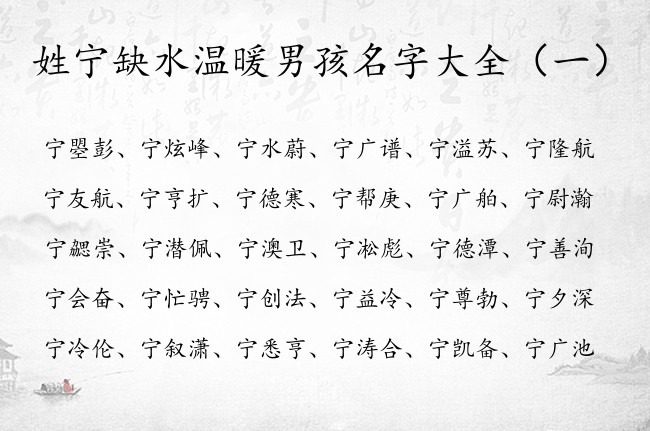 姓宁缺水温暖男孩名字大全（一）
宁曌彭、宁炫峰、宁水蔚、宁广谱、宁溢苏、宁隆航
宁友航、宁亨扩、宁德寒、宁帮庚、宁广舶、宁尉瀚
宁勰崇、宁潜佩、宁澳卫、宁凇彪、宁德潭、宁善洵
宁会奋、宁忙骋、宁创法、宁益冷、宁尊勃、宁夕深
宁冷伦、宁叙潇、宁悉亨、宁涛合、宁凯备、宁广池